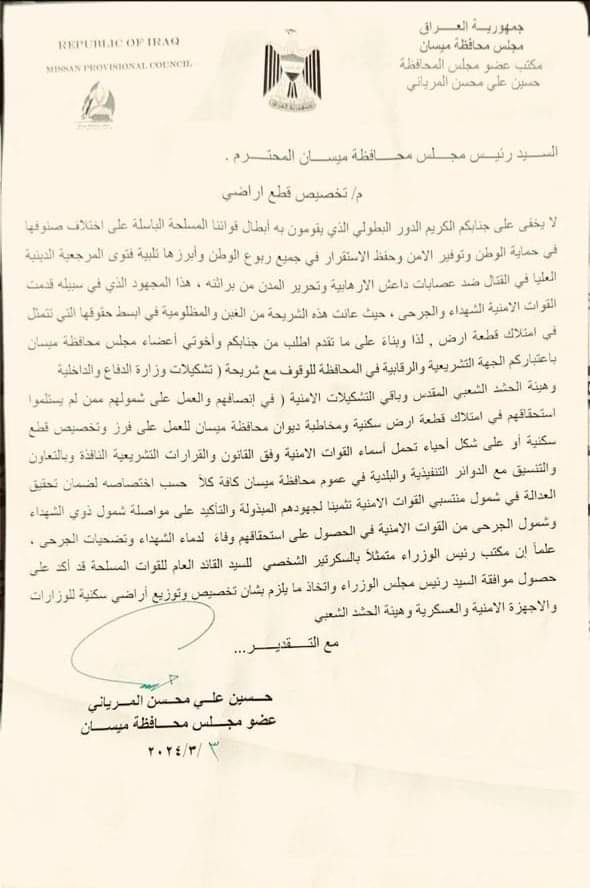 جمهورية العراق
مجلس محافظة ميسان
مكتب عضو مجلس المحافظة
حسين علي محسن المرياني
REPUBLIC OF IRAQ
MISSAN PROVISIONAL COUNCIL
السيد رئيس مجلس محافظة ميسان المحترم .
م/ تخصيص قطع اراضي
لا يخفى على جنابكم الكريم الدور البطولي الذي يقومون به أبطال قواتنا المسلحة الباسلة على اختلاف صنوفها
في حماية الوطن وتوفير الامن وحفظ الاستقرار في جميع ربوع الوطن وأبرزها تلبية فتوى المرجعية الدينية
العليا في القتال ضد عصابات داعش الارهابية وتحرير المدن من براثنه ، هذا المجهود الذي في سبيله قدمت
القوات الامنية الشهداء والجرحى ، حيث عانت هذه الشريحة من الغبن والمظلومية في ابسط حقوقها التي تتمثل
في امتلاك قطعة ارض , لذا وبناءً على ما تقدم اطلب من جنابكم وأخوتي أعضاء مجلس محافظة ميسان
باعتباركم الجهة التشريعية والرقابية في المحافظة للوقوف مع شريحة ( تشكيلات وزارة الدفاع والداخلية
وهيئة الحشد الشعبي المقدس وباقي التشكيلات الامنية ) في إنصافهم والعمل على شمولهم ممن لم يستلموا
استحقاقهم في امتلاك قطعة ارض سكنية ومخاطبة ديوان محافظة ميسان للعمل على فرز وتخصيص قطع
سكنية أو على شكل أحياء تحمل أسماء القوات الامنية وفق القانون والقرارات التشريعية النافذة وبالتعاون
والتنسيق مع الدوائر التنفيذية والبلدية في عموم محافظة ميسان كافة كلاً حسب اختصاصه لضمان تحقيق
العدالة في شمول منتسبي القوات الامنية تثمينا لجهودهم المبذولة والتأكيد على مواصلة شمول ذوي الشهداء
وشمول الجرحى من القوات الامنية في الحصول على استحقاقهم وفاءً لدماء الشهداء وتضحيات الجرحى ،
علماً إن مكتب رئيس الوزراء متمثلاً بالسكرتير الشخصي للسيد القائد العام للقوات المسلحة قد أكد على
حصول موافقة السيد رئيس مجلس الوزراء واتخاذ ما يلزم بشان تخصيص وتوزيع أراضي سكنية للوزارات
والاجهزة الامنية والعسكرية وهيئة الحشد الشعبي
مع التقدير...
حسين علي محسن المرياني
عضو مجلس محافظة ميسان
٢٠٢٤/٣/ ٣